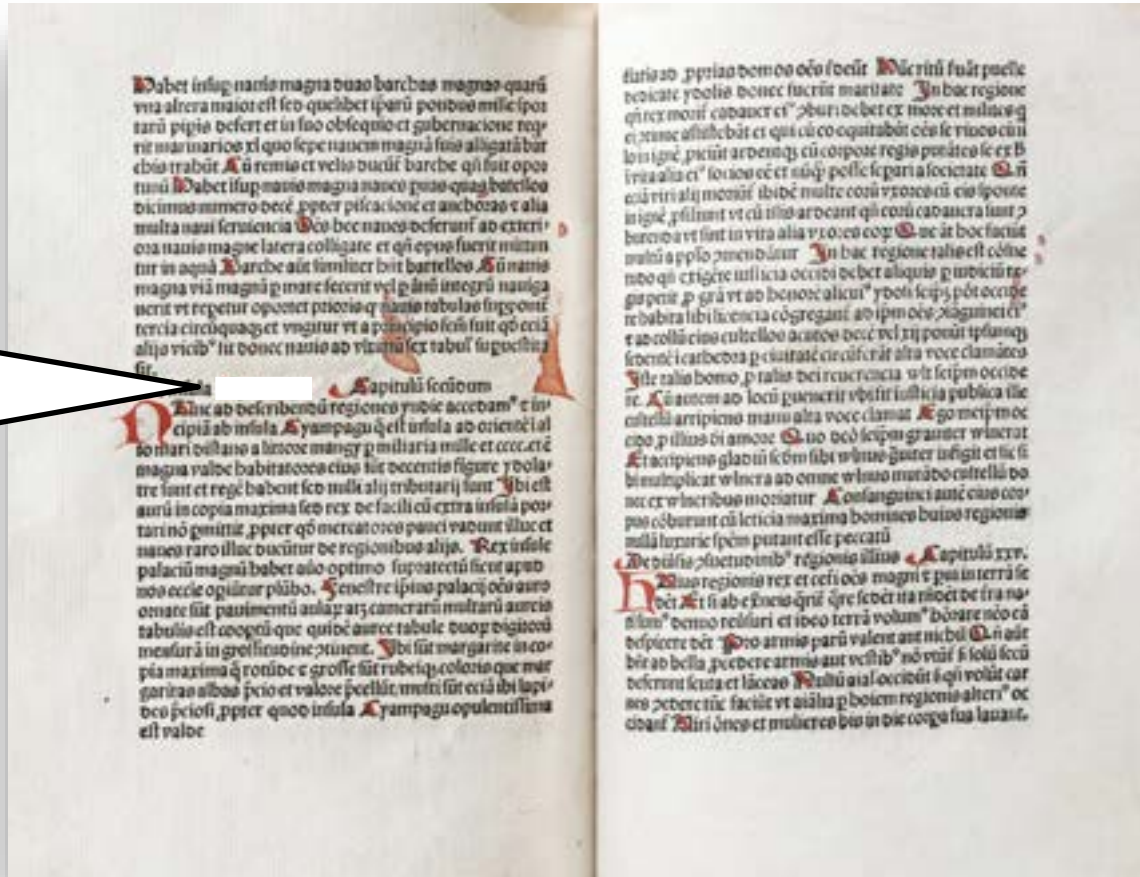 Habet insup nauis magna duas barchas magnas quarū
vna altera maior est sed quelibet iparū pondus mille spor
tarū pipis defert et in suo obsequio et gubernacione req̄
rit marinarios xl quo sepe nauem magnā suis alligatā
trahūt Cū remis et velis ducūt barche qn̄ fuit opor
tunū Habet īsup nauis magna naues quas batellos
dicimus numero decē ꝓpter piscacionē et anchoras ⁊ alia
multa naui seruiencia Oēs hec naues deferunt ad exteri⸗
ora nauis magne latera colligate et qn̄ opus fuerit mittun
tur in aquā Barche aūt similiter hn̄t bartellos Cū nauis
magna viā magnā p mare fecerit vel p ānū integrū nauiga
uerit vt repetur oportet prioris nauis tabulas supponi
tercia circūquaqꝫ et vngitur vt a principio fuit qd eciā
alijs vicibꝰ fit donec nauis ad
sit.
Capitulū secūdum
Nunc ad describendū regiones yndie accedamꝰ ⁊ in⸗
cipiā ab insula Cyampagu q̄ est insula ad orientē ī al
to mari distans a littore mangy p miliaria mille et cccc. et ē
magna valde habitatores eius sūt decentis figure ydola⸗
tre sunt et regē habent sed nulli alij tributarij sunt Ibi est
aurū in copia maxima sed rex de facili eū extra insulā por
tari nō ꝓmittit ꝓpter qd mercatores pauci vadunt illuc et
naues raro illuc ducūtur de regionibus alijs. Rex insule
palaciū magnū habet auro optimo supratectū sicut apud
nos ecclie opiūtur plūbo. Fenestre ipius palacij oēs auro
ornate sūt pauimentū aulaꝝ atqꝫ camerarū multarū aureis
tabulis est cooptū que quidē auree tabule duoꝝ digitorū
mensurā in grossitudine ꝯtinent. Ibi sūt margarite in co⸗
pia maxima q̄ rotūde ⁊ grosse sūt rubeiqꝫ coloris que mar
garitas albas p̄cio et valore p̄cellūt, multi sūt eciā ibi lapi⸗
des p̄ciosi, ꝓpter quod insula Cyampagu opulentissima
est valde
ad ꝓprias domos oēs Hūc ritū puelle
dedicate ydolis donec fuerīt maritate In hac regione
qn̄ rex morit cadauer eiꝰ ꝯburi debet ex more et milites
ei assistebāt et qui cū eo equitabāt oēs se viuos
in ignē ꝓiciūt ardentqꝫ cū corpore regis putātes se ex
ī vita alia eiꝰ socios eē et nūqꝫ posse separi a societate
eciā viri alij moriūt ibidē multe eorū vxores cū eis sponte
in ignē ꝓsiliunt vt cū illis ardeant qn̄ eorū cadauera sunt ꝯ
burenda vt sint in vita alia vxores eoꝝ Que āt hoc faciūt
multū a pplo ꝯmendātur In hac regione talis est cōsue
tudo qn̄ exigēte iusticia occidi debet aliquis p iudiciū re⸗
gis petit ꝓ grā vt ad honorē alicuiꝰ ydoli seipꝫ pōt occidere
habita sibi licencia cōgregant ad ipm oēs ꝯsaguinei eiꝰ
⁊ ad collū eius cultellos acutos decē vel xij ponūt ipsumqꝫ
sedentē ī cathedra p ciuitatē circūferāt alta voce clamātes
Iste talis homo ꝓ talis dei reuerencia vlt seipm occide
re. Cū autem ad locū puenerit vbi fit iusticia publica ille
cultellū arripiens manu alta voce clamat Ego meipm oc
cido ꝓ illius di amore Quo dcō seipm grauiter wlnerat
Et accipiens gladiū scdm sibi wlnus grauiter īfigit et sic si
bi multiplicat wlnera ad omne wlnus mutādo cultellū do
nec ex wlneribus moriatur Consanguinei autē eius cor⸗
pus cōburunt cū leticia maxima homines huius regionis
nullā luxurie spēm putant esse peccatū
De diūsis ꝯsuetudinibꝰ regionis illius Capitulū xxv.
Huius regionis rex et ceti oēs magni ⁊ pui in terrā se
dēt
denuo reūsuri et ideo terrā volumꝰ hōrare nēo eā
despicere dēt Pro armis parū valent aut nichil Qn̄ aūt
hn̄t ad bella ꝓcedere armis aut vestibꝰ nō vtūt ſ solū secū
deferunt scuta et lāceas Nullū aial occidūt ſ qn̄ volūt car
nes ꝯedere tūc faciūt vt aiālia p hoiem regionis alteriꝰ oc
cidant Viri ōnes et mulieres bis in die corpa sua lauant.